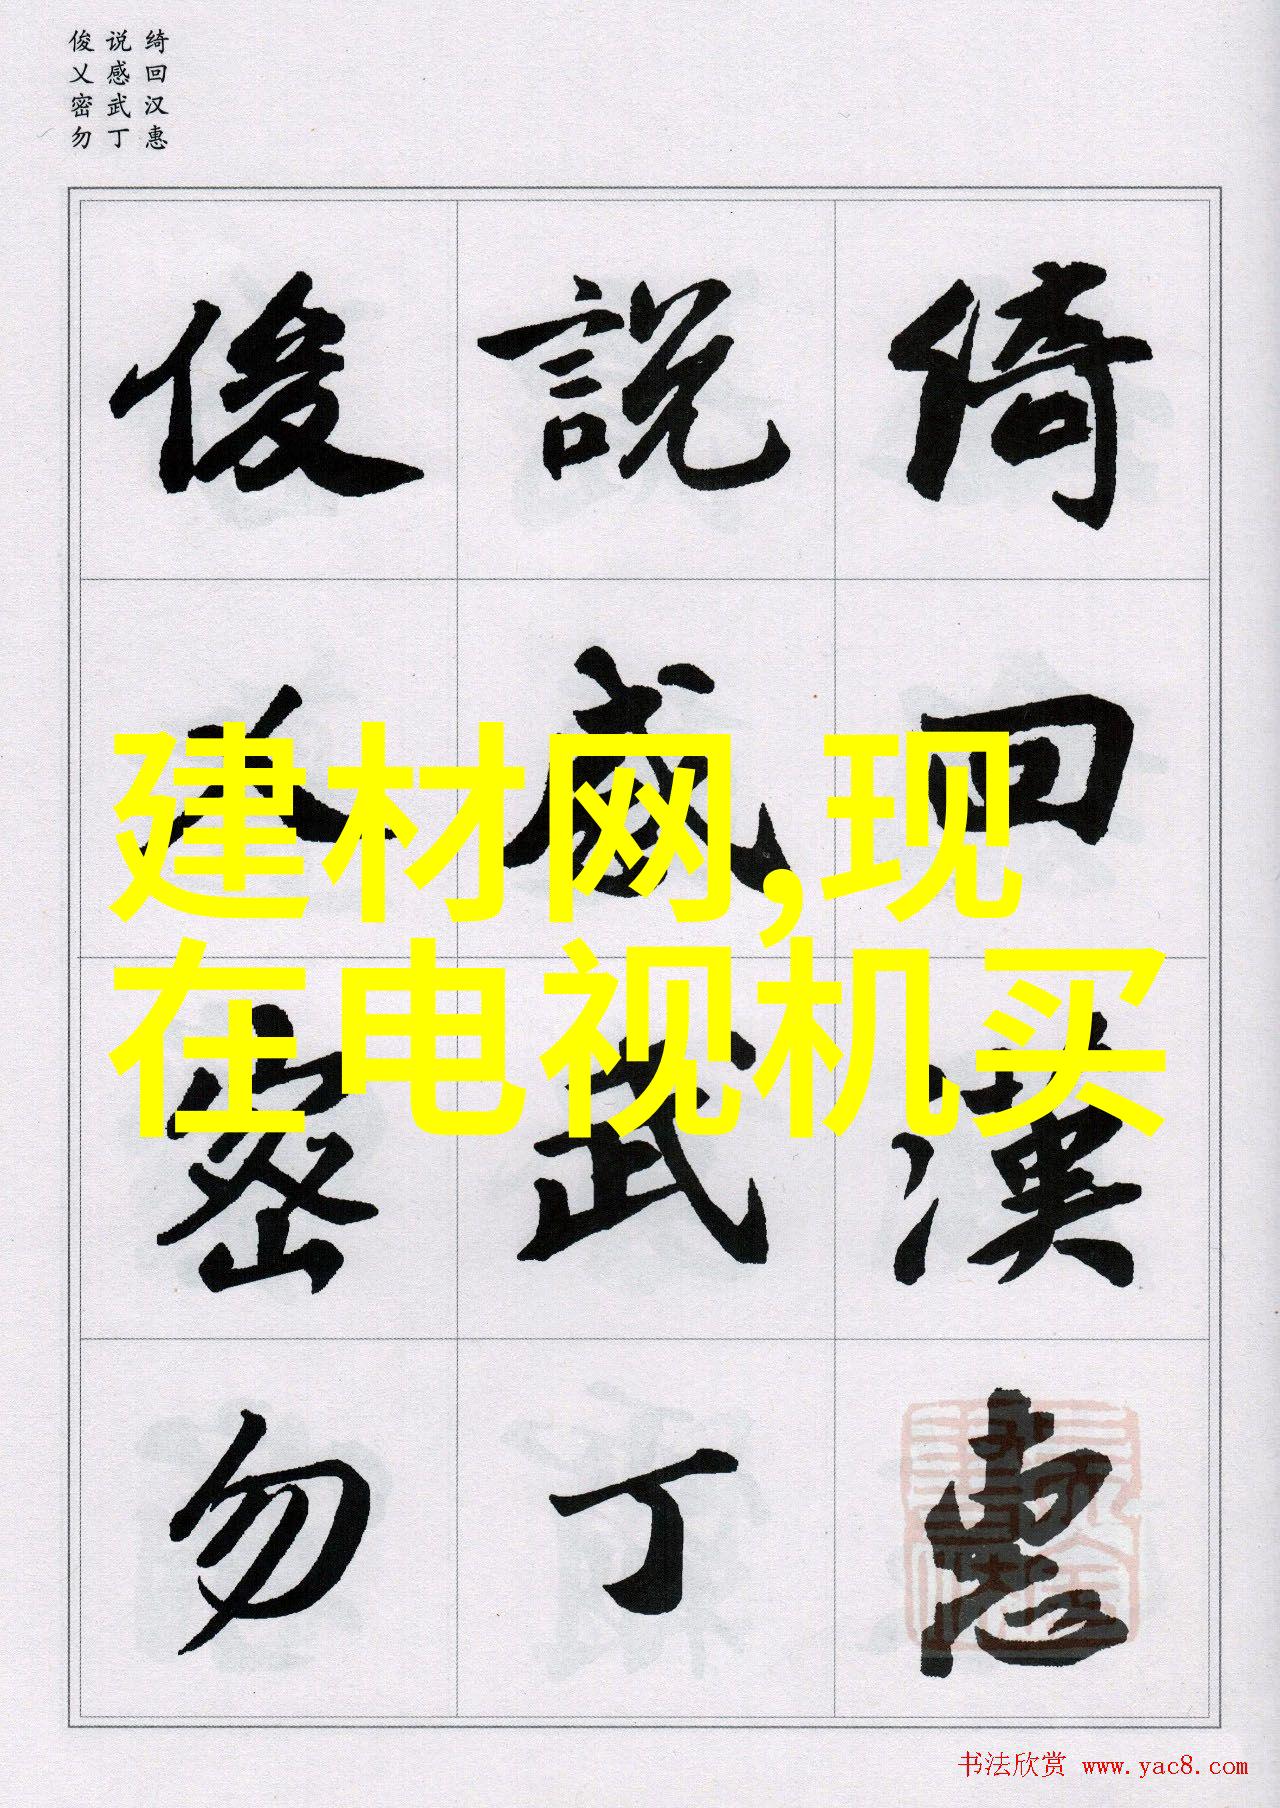 绮回汉惠
说感武丁
俊乂密勿
綺回漢惠
說感武丁
俊乂密勿
建材网,现
在电视机买
书法欣赏 www.yac8.com